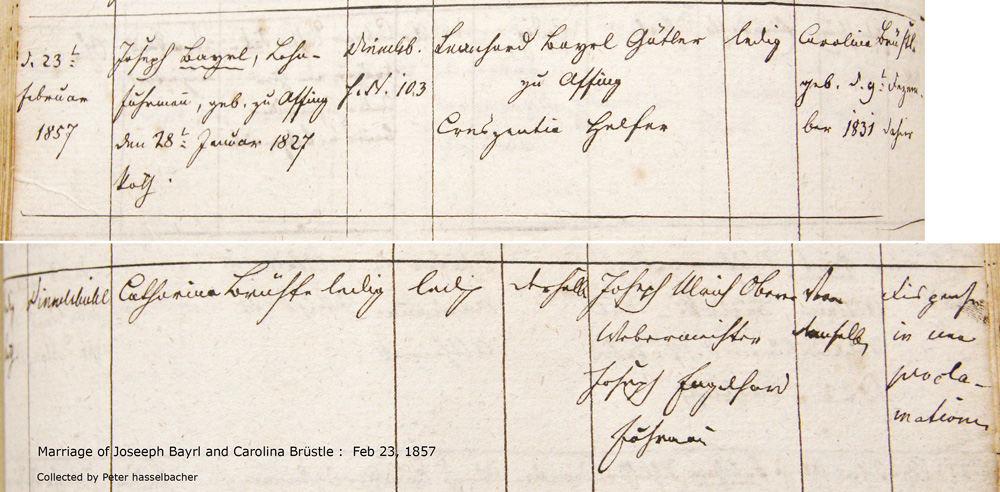 d. 23t.
Februar
1857
Joseph Bayrl, Lohn-
fuhrmann, geb. zu Affing
den 28t. Januar 1827
kath.
Dinklsb.
H.N. 103
Leonhard Bayrl Gütler
zu Affing
Creszentia Helfer
ledig
Carolina Brüstle
geb. d. 9t. Dezem-
ber 1831 daher
Dinkelsbühl
Catharina Brüstle ledig
ledig
derselbe
Joseph Ulrich Oberer
Webermeister
Joseph Engelhard
Fuhrmann
Von
demselb.
Dispens.
in una
procla-
matione
Marriage of Joseeph Bayrl and Carolina Brüstle : Feb 23, 1857
Collected by Peter hasselbacher